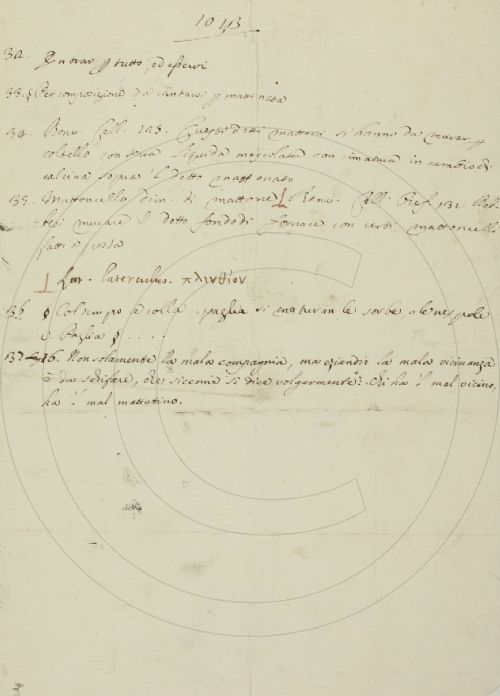 1013
32. Entrar p tutto, ed esservi
33. § Per composizione da cantarsi p mattinata
34. Benv. Cell. 148. Questi detti mattoni si hanno da murar p
coltello con terra liquida mescolata con cimatura in cambio di
calcina sopra 'l detto mattonato
35. Mattoncello dim. di mattone ⊥ Benv. Cell. Oref. 131.
murare il detto fondo di fornace con versi mattoncelli
fatti a posta
⊥ Lat. laterculus. πλινθίον
136 § Col tempo e colla paglia si maturan le sorbe o le nespole
v. Paglia § .....
137 16. Non solamente la mala compagnia, ma eziandio la mala vicinanza
è da schifare, che siccome si dice volgarmente: Chi ha 'l mal vicino,
ha 'l mal mattutino.